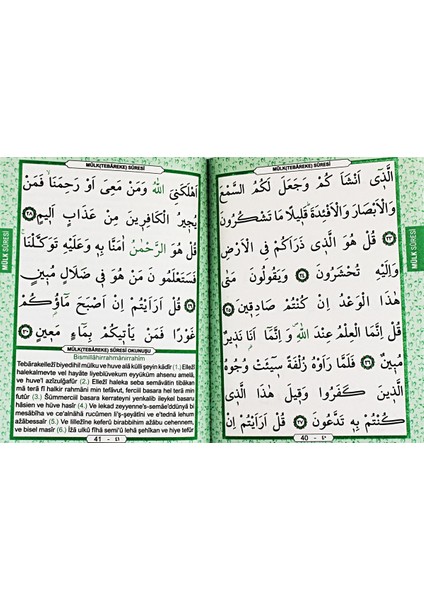 MÜLK(TEBÂREKE) SÛRESİ
الَّذٖى اَنْشَاَ كُمْ وَجَعَلَ لَكُمُ السَّمْعَ
وَالْاَبْصَارَ وَالْاَفْئِدَةَ قَلٖيلًا مَا تَشْكُرُونَ
﴿٢٣﴾ قُلْ هُوَ الَّذٖى ذَرَاَكُمْ فِى الْاَرْضِ
وَاِلَيْهِ تُحْشَرُونَ ﴿٢٤﴾ وَيَقُولُونَ مَتٰى
هٰذَا الْوَعْدُ اِنْ كُنْتُمْ صَادِقٖينَ ﴿٢٥﴾
قُلْ اِنَّمَا الْعِلْمُ عِنْدَ اللّٰهِ وَ اِنَّمَا اَنَا۬ نَذٖيرٌ
مُبٖينٌ ﴿٢٦﴾ فَلَمَّا رَاَوْهُ زُلْفَةً سٖٓيـَٔتْ وُجُوهُ
الَّذٖينَ كَفَرُوا وَقٖيلَ هٰذَا الَّذٖى
كُنْتُمْ بِهٖ تَدَّعُونَ ﴿٢٧﴾ قُلْ اَرَاَيْتُمْ اِنْ
40 - ٤٠
MÜLK SÛRESİ
MÜLK(TEBÂREKE) SÛRESİ
اَهْلَكَنِىَ اللّٰهُ وَمَنْ مَعِىَ اَوْ رَحِمَنَا فَمَنْ
يُجٖيرُ الْكَافِرٖينَ مِنْ عَذَابٍ اَلٖيمٍ ﴿٢٨﴾
قُلْ هُوَ الرَّحْمٰنُ اٰمَنَّا بِهٖ وَعَلَيْهِ تَوَكَّلْنَا
فَسَتَعْلَمُونَ مَنْ هُوَ فٖى ضَلَالٍ مُبٖينٍ
﴿٢٩﴾ قُلْ اَرَاَيْتُمْ اِنْ اَصْبَحَ مَٓاؤُ۬كُمْ
غَوْرًا فَمَنْ يَاْتٖيكُمْ بِمَٓاءٍ مَعٖينٍ ﴿٣٠﴾
MÜLK(TEBÂREKE) SÛRESİ OKUNUŞU
Bismillâhirrahmânirrahîm
Tebârakelleżî biyedihil mülku ve huve alâ külli şeyin kadîr (1.) Elleżî
halekalmevte vel hayâte liyeblüvekum eyyüküm ahsenu amelâ,
ve huve'l azîzulğafûr (2.) Elleżî haleka seba semâvâtin tibâkan
mâ terâ fî halkir rahmâni min tefâvut, ferciil basara hel terâ min
futûr (3.) Śümmerciil basara kerrateyni yenkalib ileykel basaru
hâsien ve hüve hasîr (4.) Ve lekad zeyyenne's-semâe'ddünyâ bi
mesâbîha ve ce'alnâhâ rucûmen li'ş-şeyâtîni ve e'tednâ lehum
ażâbessaîr (5.) Ve lilleżîne keferû birabbihim ażâbu cehennem,
ve bisel masîr (6.) İżâ ulkû fîhâ semi'û lehâ şehîkan ve hiye tefûr
41 - ٤١
MÜLK SÛRESİ